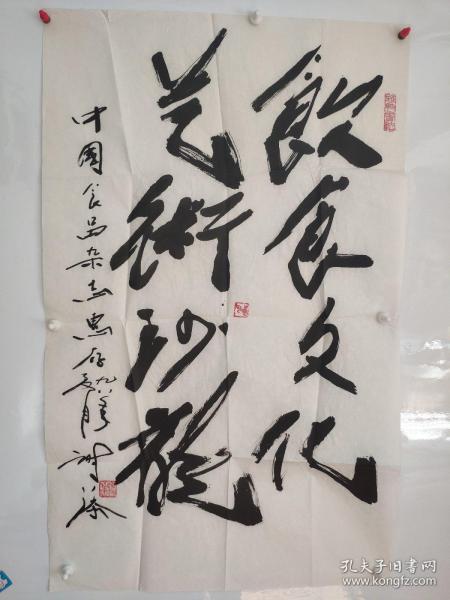 飲食文化
艺術沙龍
中國食品杂志惠存 九八年
孔夫子旧书网
www.kongfz.com